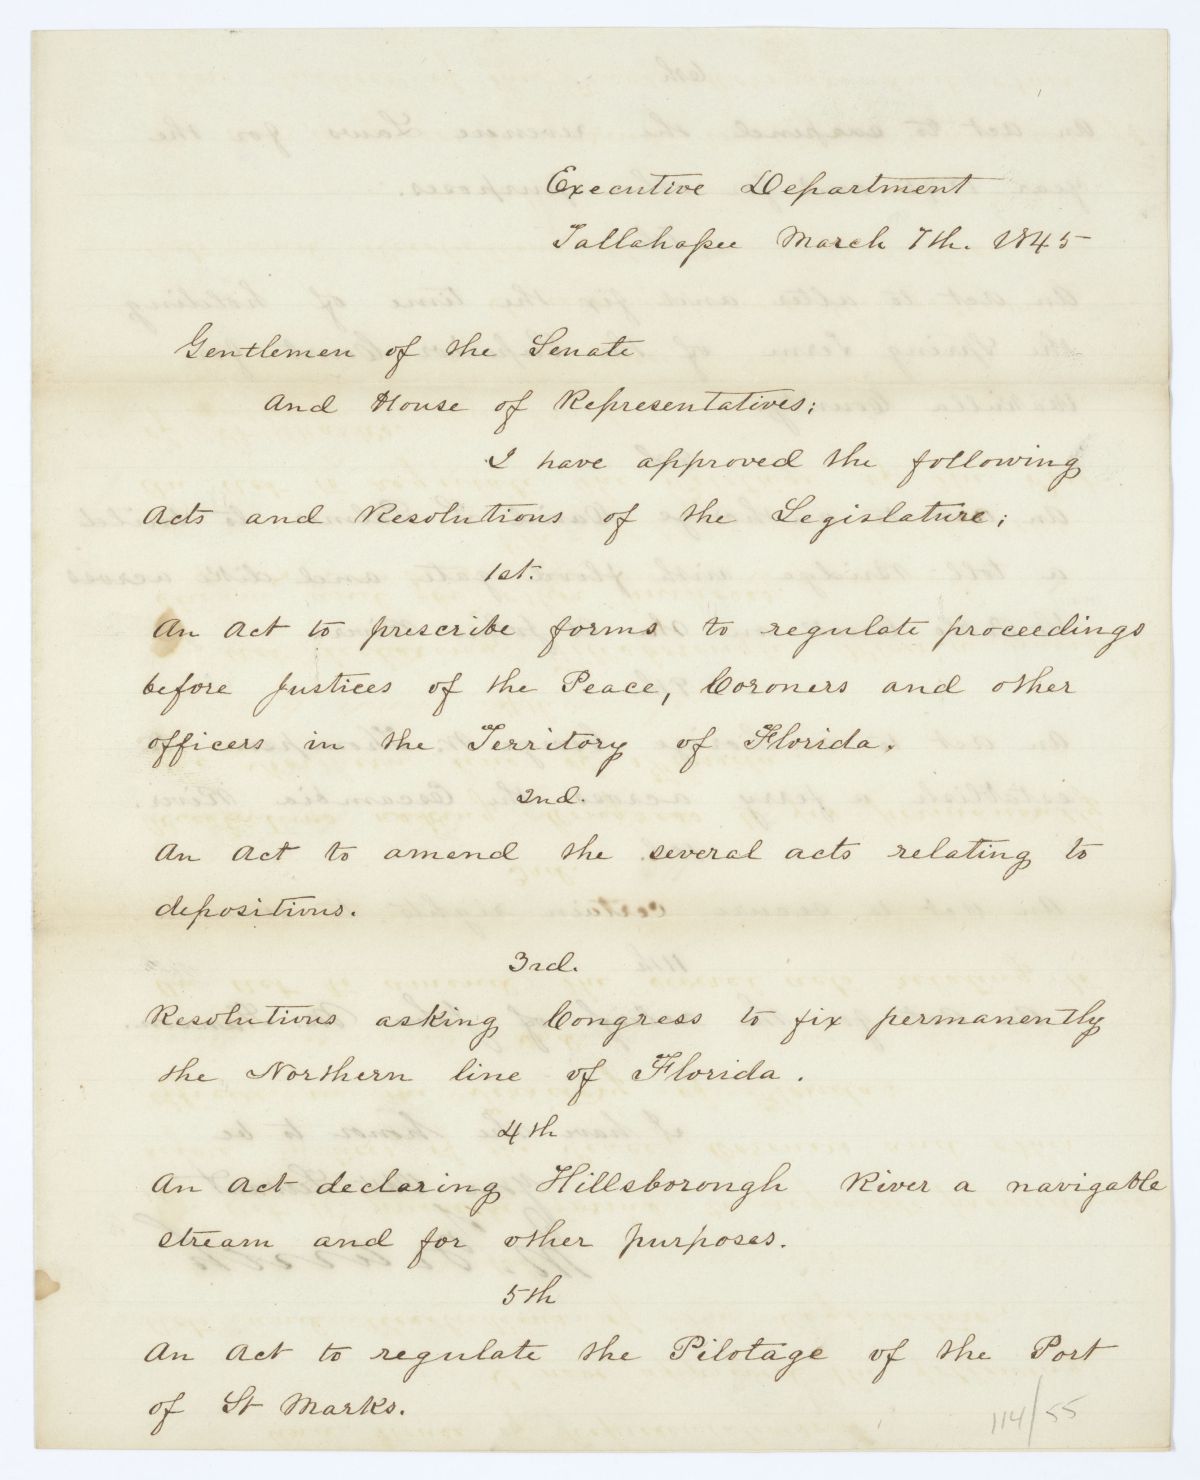 Executive Department
Tallahassee March 7th. 1845
Gentlemen of the Senate
And House of Representatives;
I have approved the following
Acts and Resolutions of the Legislature;
1st.
An Act to prescribe forms to regulate proceedings
before Justices of the Peace, Coroners and other
officers in the Territory of Florida.
2nd.
An Act to amend the several acts relating to
depositions.
3rd.
Resolutions asking Congress to fix permanently
the Northern line of Florida.
4th
An Act declaring Hillsborough River a navigable
stream and for other purposes.
5th
An Act to regulate the Pilotage of the Port
of St Marks.
114/55